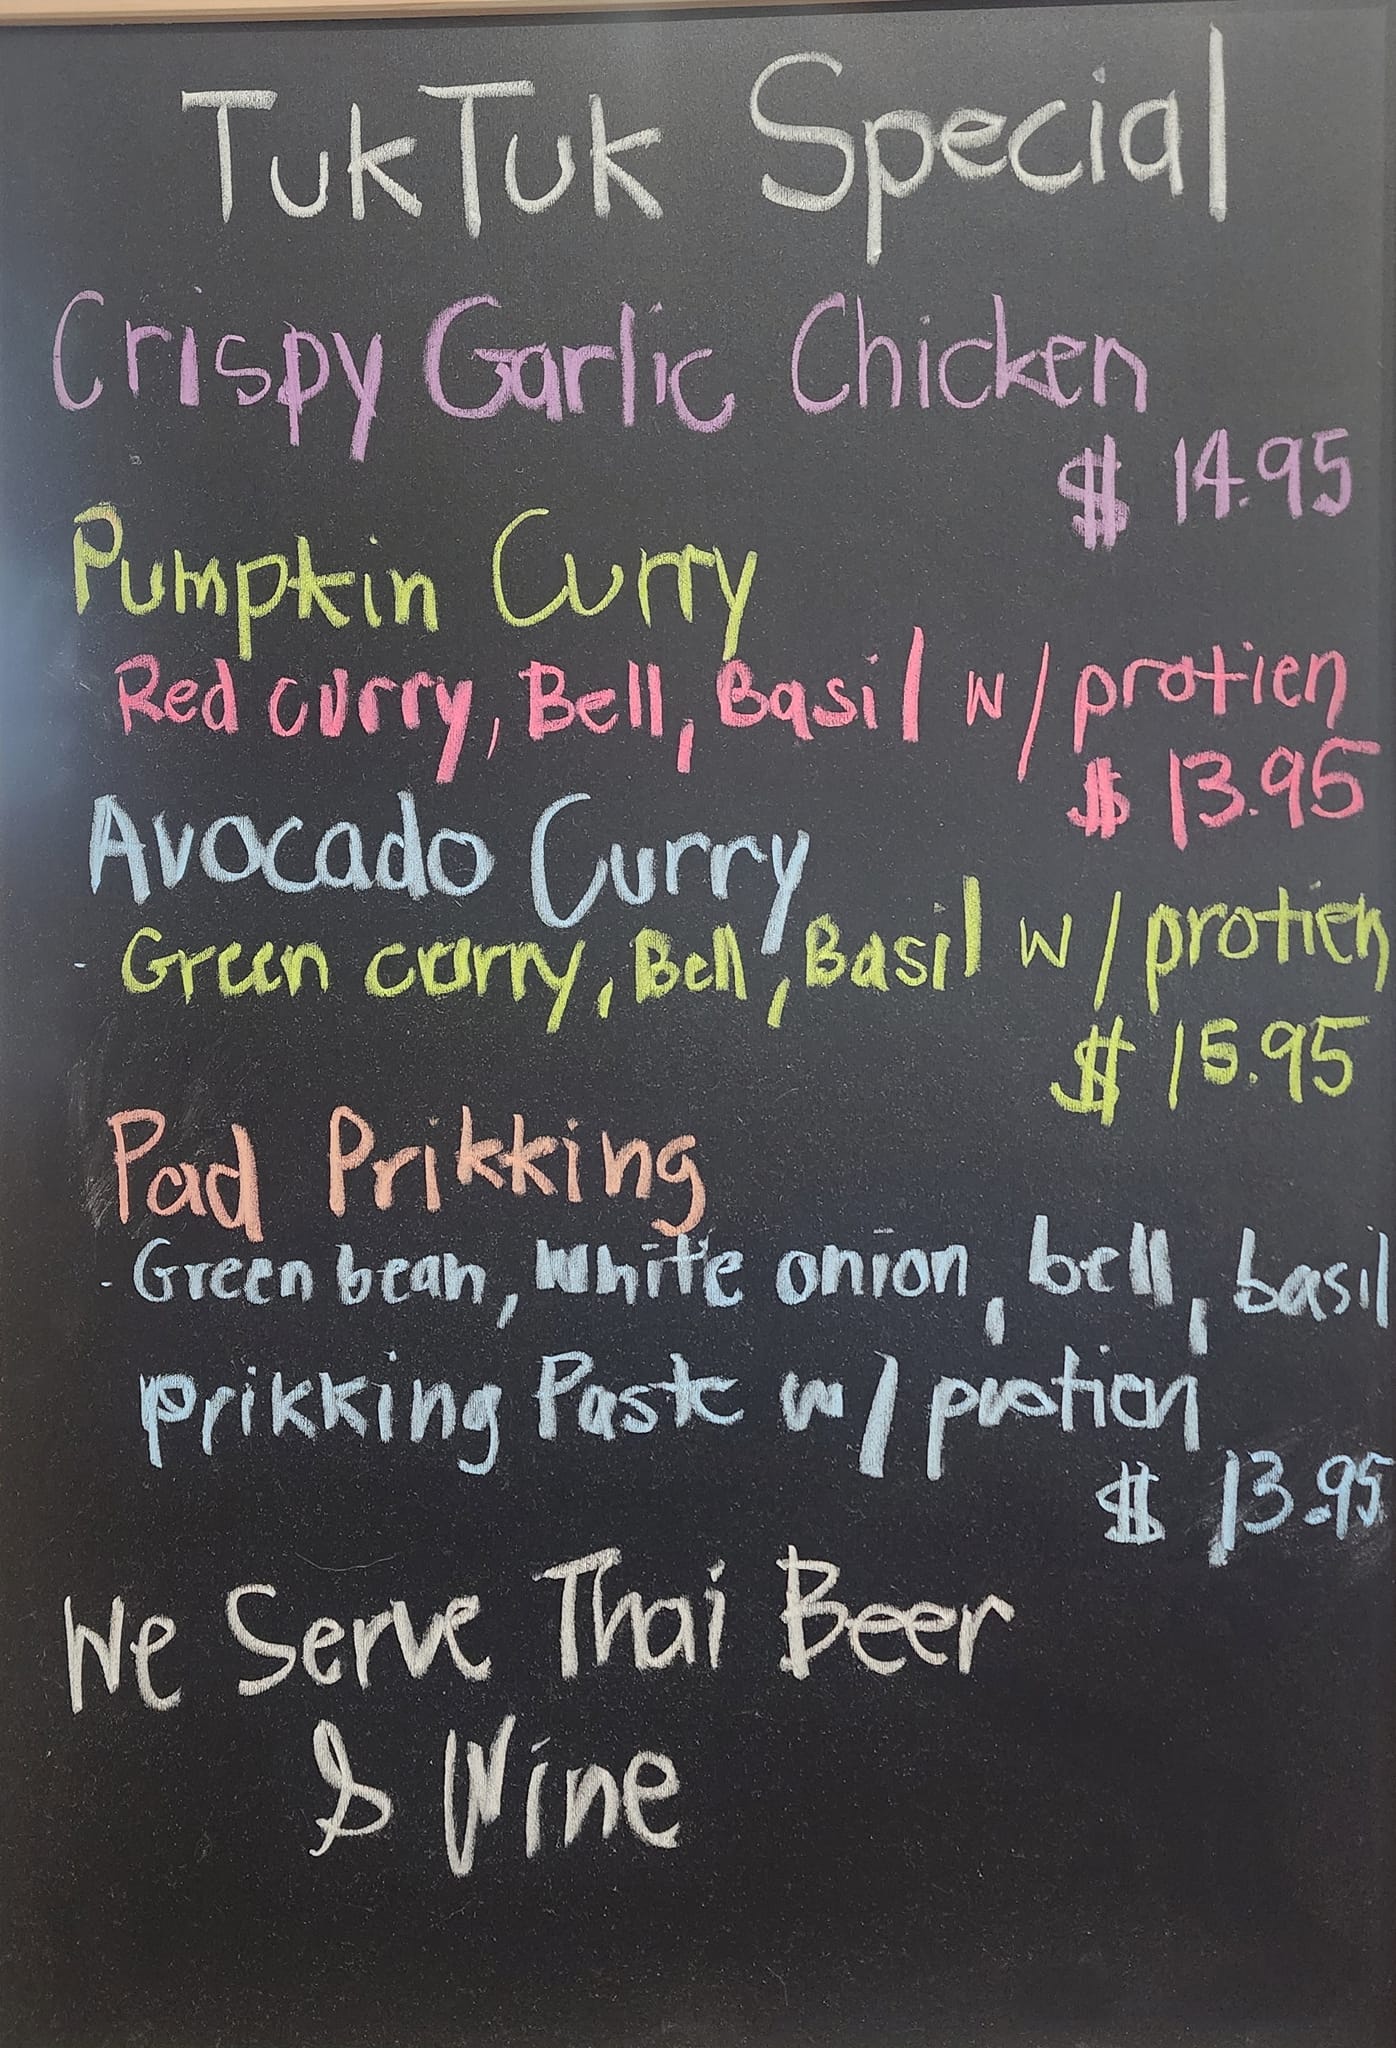 TukTuk Special
Crispy Garlic Chicken
$ 14.95
Pumpkin Curry
Red curry, Bell, Basil w/ protien
$ 13.95
Avocado Curry
- Green curry, Bell, Basil w/ protien
$ 15.95
Pad Prikking
- Green bean, white onion, bell, basil
prikking Paste w/ protien
$ 13.95
We Serve Thai Beer
& Wine